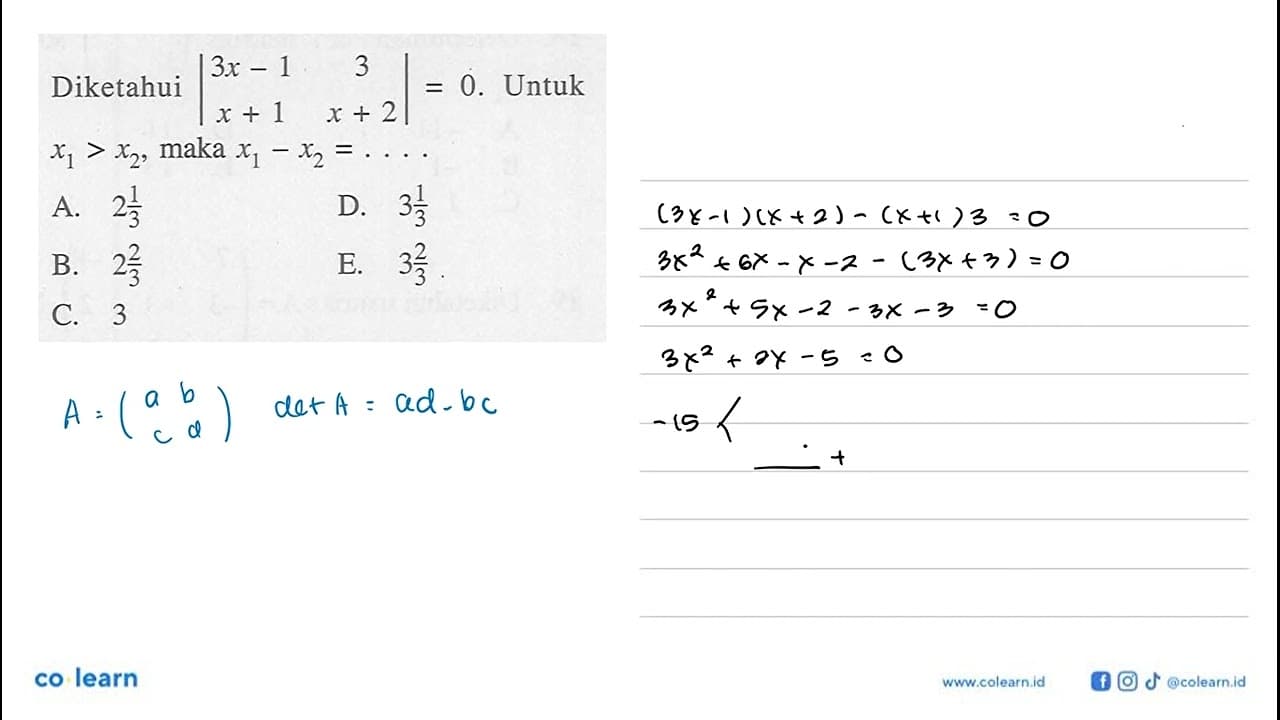 Diketahui |3x - 1 3|
|x + 1 x + 2| = 0. Untuk
x₁ > x₂, maka x₁ - x₂ = . . . .
A. 2 1/3 D. 3 1/3
B. 2 2/3 E. 3 2/3 .
C. 3
A = (a b
c d) det A = ad - bc
(3x-1)(x+2) - (x+1)3 = 0
3x² + 6x - x - 2 - (3x + 3) = 0
3x² + 5x - 2 - 3x - 3 = 0
3x² + 2x - 5 = 0
-15 <
+
co learn
www.colearn.id
@colearn.id